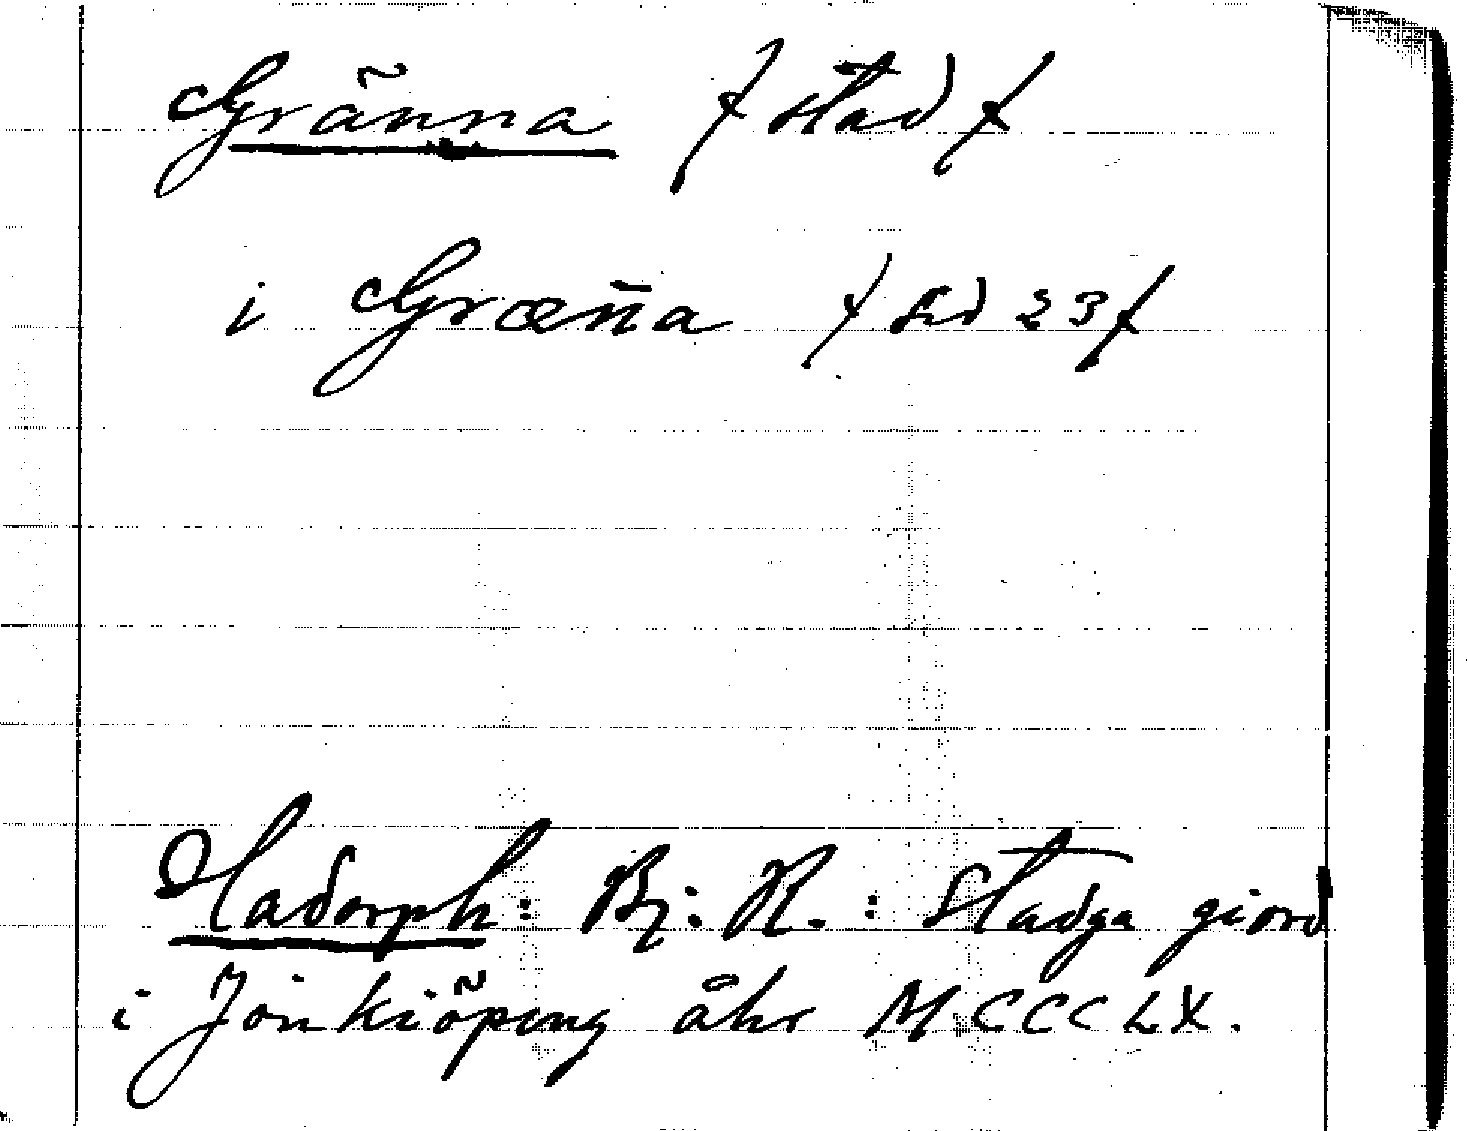 Gränna / stad /
i Græn̄a / sid 23 /
Hadorph: Bj. R.: Stadga giord
i Jönkiöping åhr MCCCLX.